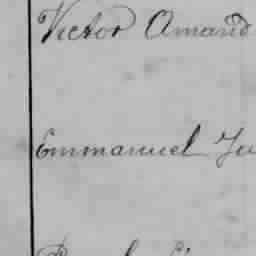 Victor Amand
Emmanuel